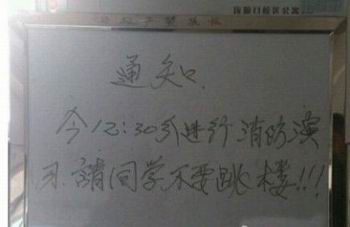 通知
今12:30分进行消防演
习.请同学不要跳楼!!!